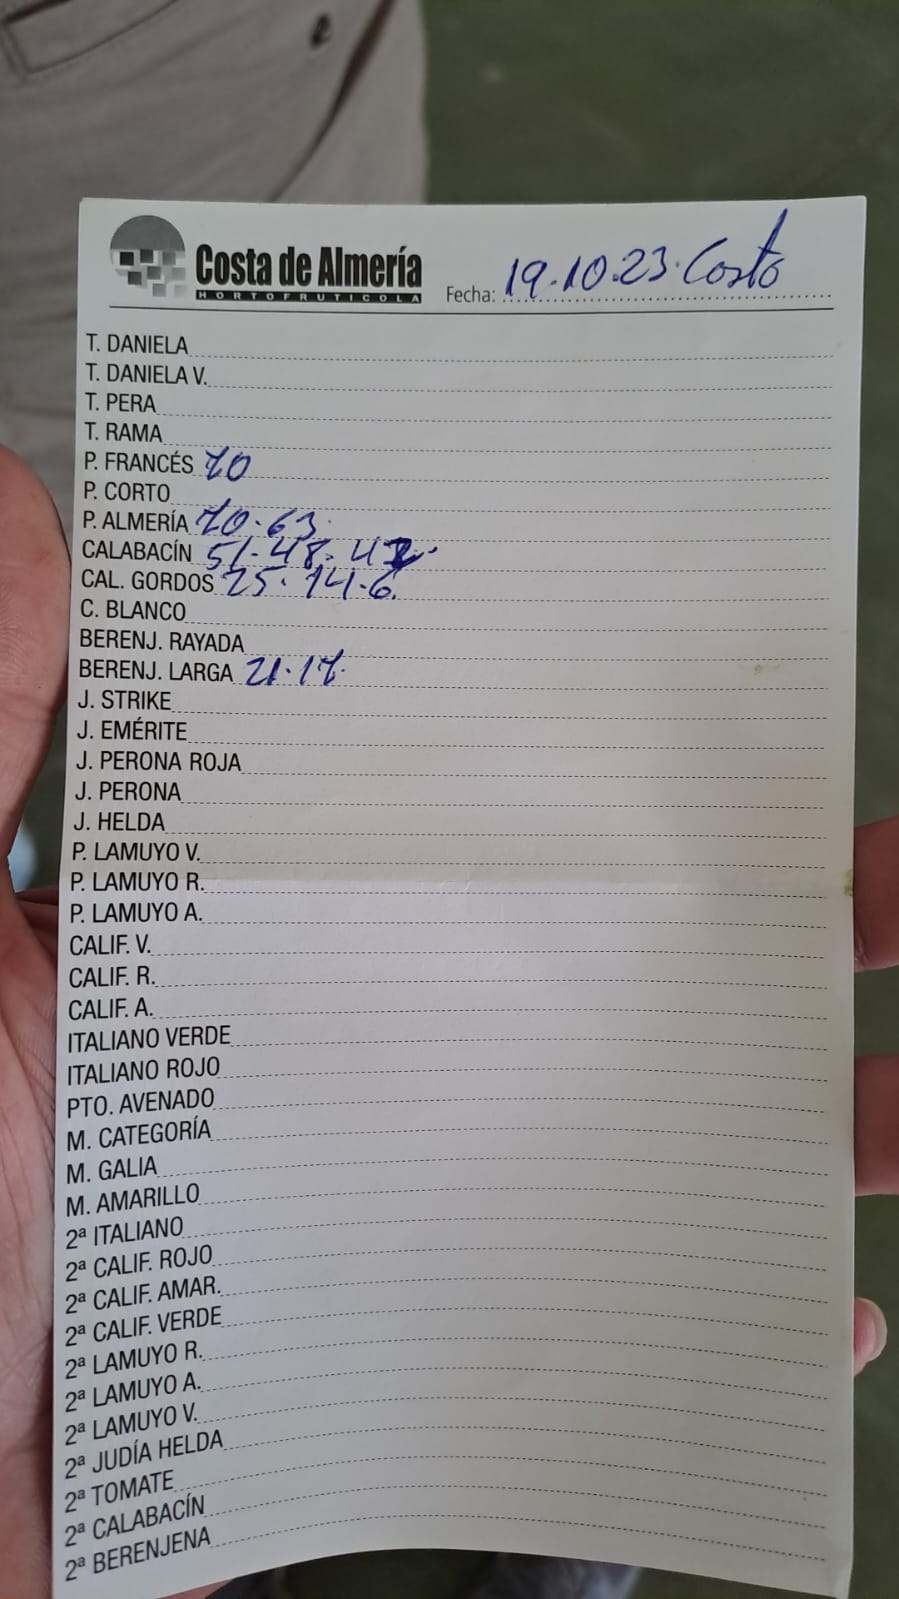 Costa de Almería
HORTOFRUTICOLA
Fecha: 19.10.23. Costo
T. DANIELA
T. DANIELA V.
T. PERA
T. RAMA
P. FRANCÉS 70
P. CORTO
P. ALMERÍA 70.63.
CALABACÍN 51.48.
CAL. GORDOS 25.14.6.
C. BLANCO
BERENJ. RAYADA
BERENJ. LARGA 21.17.
J. STRIKE
J. EMÉRITE
J. PERONA ROJA
J. PERONA
J. HELDA
P. LAMUYO V.
P. LAMUYO R.
P. LAMUYO A.
CALIF. V.
CALIF. R.
CALIF. A.
ITALIANO VERDE
ITALIANO ROJO
PTO. AVENADO
M. CATEGORÍA
M. GALIA
M. AMARILLO
2ª ITALIANO
2ª CALIF. ROJO
2ª CALIF. AMAR.
2ª CALIF. VERDE
2ª LAMUYO R.
2ª LAMUYO A.
2ª LAMUYO V.
2ª JUDÍA HELDA
2ª TOMATE
2ª CALABACÍN
2ª BERENJENA